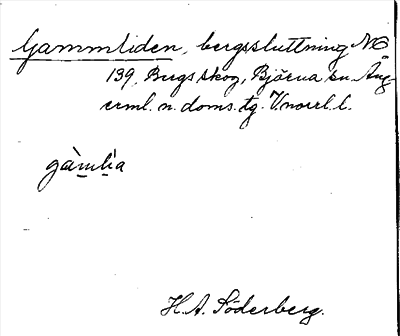 Gammliden, bergssluttning NO
139, Bergs skog, Björna sn. Ång-
erml. n. doms. tg. V.norrl. l.
gàmlìa
H.A. Söderberg.